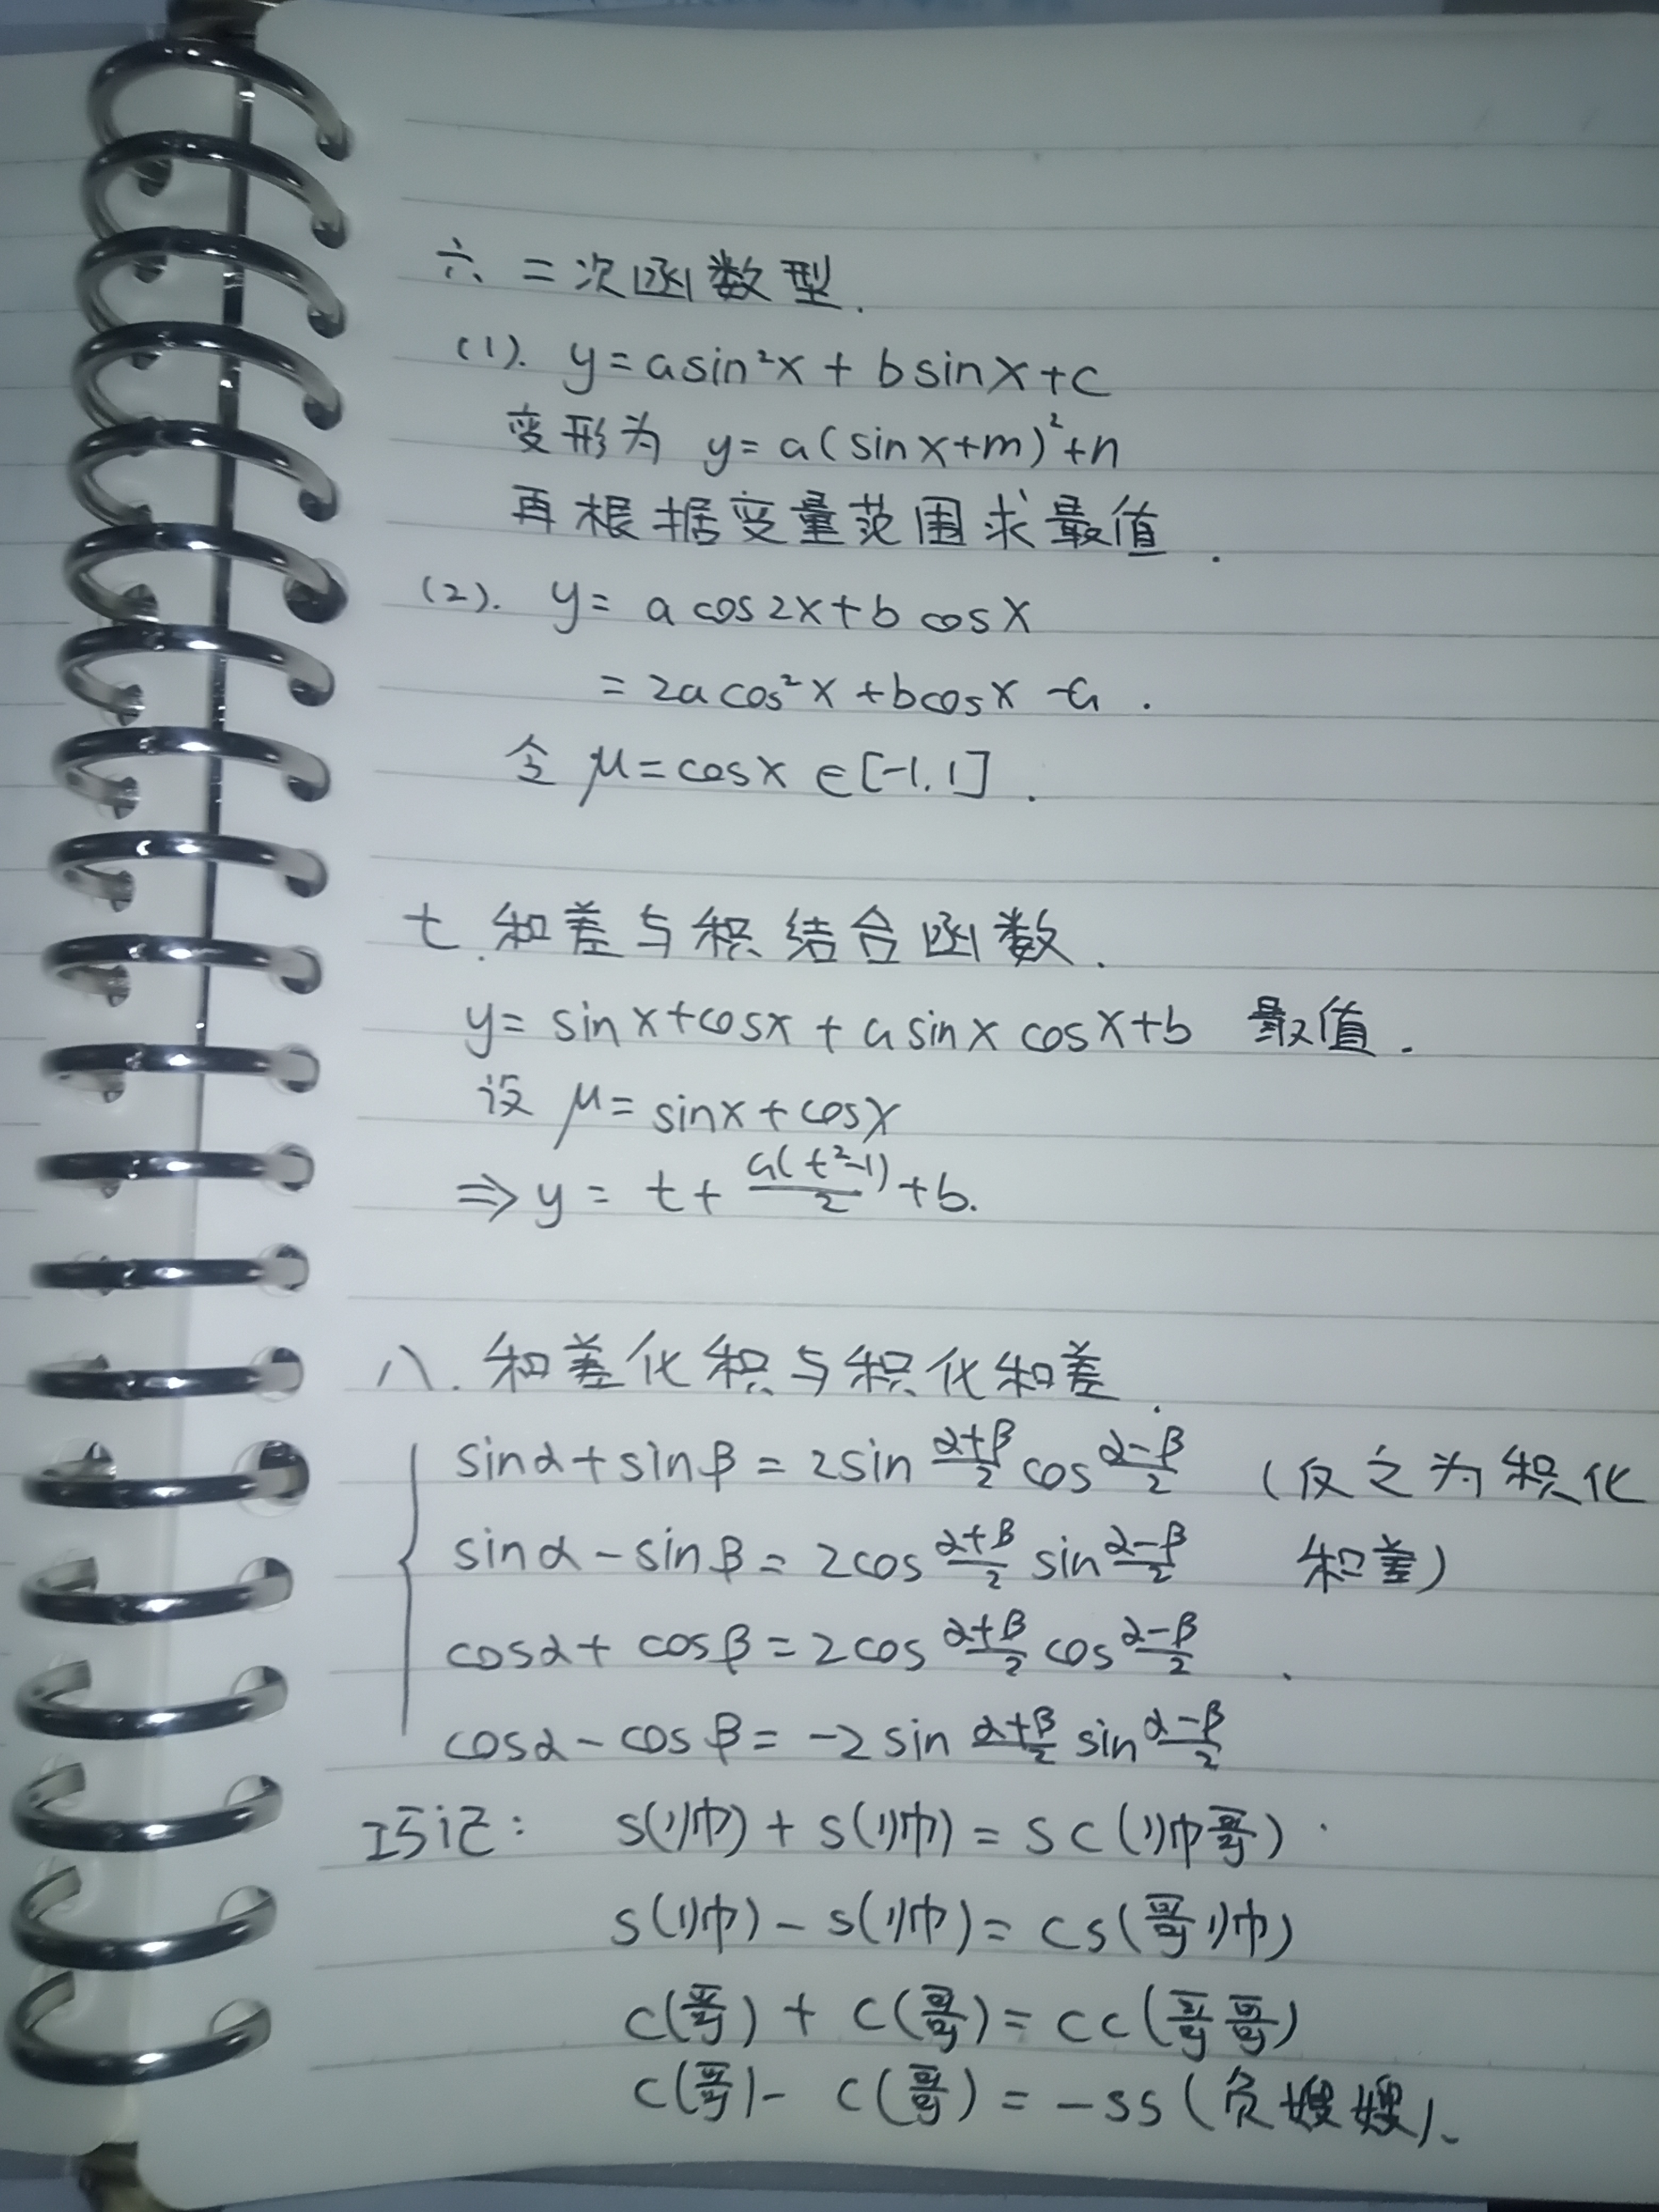 六、二次函数型.
(1). y=asin²x+bsinx+c
变形为 y=a(sinx+m)²+n
再根据变量范围求最值.
(2). y=acos2x+bcosx
=2acos²x+bcosx-a.
令 μ=cosx∈[-1,1].
七.和差与积结合函数.
y=sinx+cosx+asinxcosx+b 最值.
设 μ=sinx+cosx
⇒y=t+\frac{a(t²-1)}{2}+b.
八.和差化积与积化和差.
sinα+sinβ=2sin\frac{α+β}{2}cos\frac{α-β}{2} (反之为积化
sinα-sinβ=2cos\frac{α+β}{2}sin\frac{α-β}{2} 和差)
cosα+cosβ=2cos\frac{α+β}{2}cos\frac{α-β}{2}.
cosα-cosβ=-2sin\frac{α+β}{2}sin\frac{α-β}{2}
巧记: s(帅)+s(帅)=sc(帅哥).
s(帅)-s(帅)=cs(哥帅)
c(哥)+c(哥)=cc(哥哥)
c(哥)-c(哥)=-ss(负嫂嫂)、